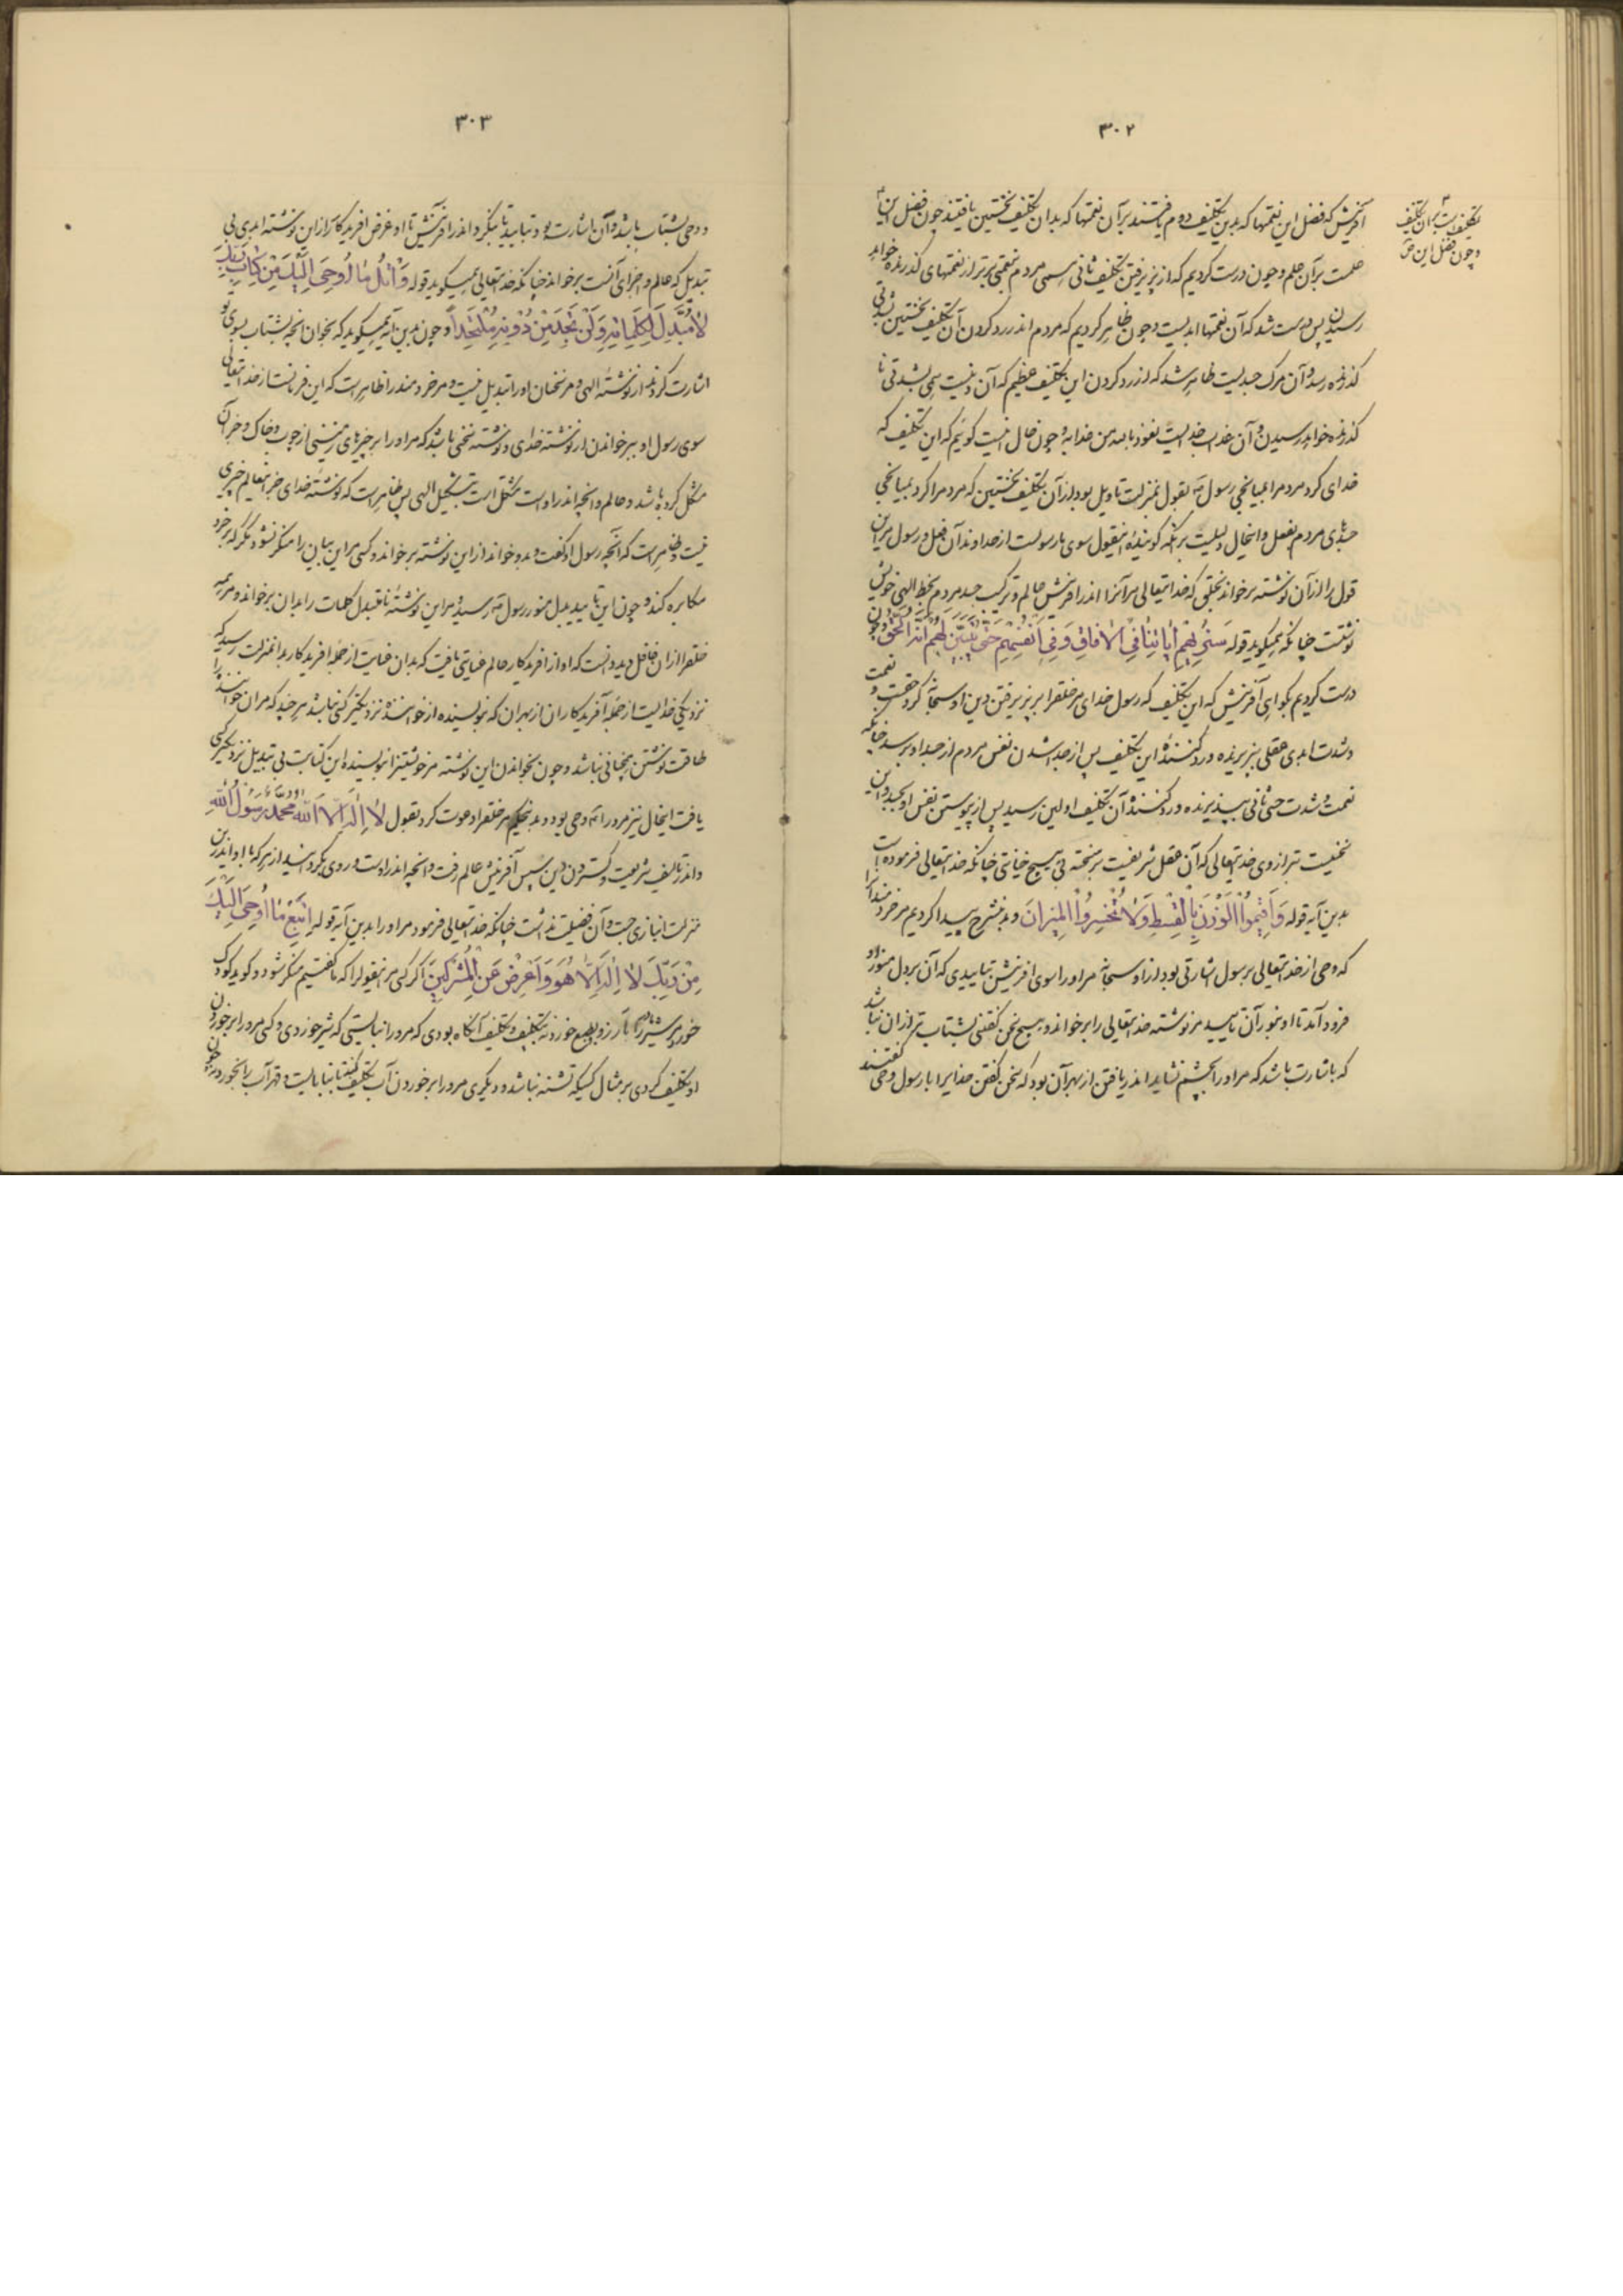 ۳۰۲
تکلیف است بر آن تکلیف
و چون فضل این
آفرینش که فضل این نعمتها که بدین تکلیف دوم یافتند بر آن نعمتها که بدان تکلیف نخستین یافتند چون فضل این
علمست بر آن علم و چون درست کردیم که از پذیرفتن تکلیف ثانی سوی مردم نعمتی برتر از نعمتهای گذرنده خواهد
رسیدن پس درست شد که آن نعمتها ابدیست و چون ظاهر کردیم که مردم اندر رد کردن آن تکلیف نخستین بشدتی
گذرنده رسد و آن مرگ جسدیست ظاهر شد که از رد کردن این تکلیف عظیم که آن دینیست همی بشدتی نا
گذرنده خواهد رسیدن و آن عذاب خدایست نعوذ بالله من عذابه و چون حال اینست گوئیم که این تکلیف که
خدای کرد مردم را بمیانجی رسول بقول بمنزلت تاویل بود از آن تکلیف نخستین که مردم را کرد بمیانجی
جسدهای مردم بفعل و اینحال دلیلست بر آنکه گوینده اینقول سوی ما رسولست از خداوند آن فعل و رسول مر این
قول را از آن نوشته برخواند بخلقی که خدایتعالی مر آنرا اندر آفرینش عالم و ترکیب جسد مردم بخط الهی خویش
نوشتست چنانکه همیگوید قوله سَنُرِیهِمْ آیَاتِنَا فِی الْآفَاقِ وَفِی أَنْفُسِهِمْ حَتَّی یَتَبَیَّنَ لَهُمْ أَنَّهُ الْحَقُّ و چون
درست کردیم بگواهی آفرینش که این تکلیف که رسول خدای مر خلق را بر پذیرفتن دین او سبحانه کرد حقست و نعمت
و شدت ابدی عقلی بپذیرنده و رد کننده این تکلیف پس از جدا شدن نفس مردم از جسد او برسد چنانکه
نعمت و شدت حسی ثانی بپذیرنده و رد کننده آن تکلیف اولین رسید پس از پیوستن نفس او بجسد و این
سختیست بترازوی خدایتعالی که آن عقل شریفست بر سخته بی هیچ خیانتی چنانکه خدایتعالی فرموده است
بدین آیه قوله وَأَقِیمُوا الْوَزْنَ بِالْقِسْطِ وَلَا تُخْسِرُوا الْمِیزَانَ و بشرح پیدا کردیم مر خردمندانرا
که وحی از خدایتعالی برسول اشارتی بود از او سبحانه مر او را سوی آفرینش بتاییدی که آن بر دل منور او
فرود آمد تا او بنور آن تایید مر نوشته خدایتعالی را برخواند و هیچ سخن گفتنی بشتاب تر از آن نباشد
که باشارت باشد که مر او را بچشم شاید اندر یافتن از بهر آن بود که سخن گفتن خدایرا با رسول وحی گفتند
۳۰۳
و وحی بشتاب باشد و آن اشارت بود بتایید تا بنگرد اندر آفرینش تا او غرض آفریدگار را از این نوشته ابدی بی
تبدیل که عالم و اجزای آنست برخواند چنانکه خدایتعالی همیگوید قوله وَاتْلُ مَا أُوحِیَ إِلَیْکَ مِنْ کِتَابِ رَبِّکَ
لَا مُبَدِّلَ لِکَلِمَاتِهِ وَلَنْ تَجِدَ مِنْ دُونِهِ مُلْتَحَدًا و چون بدین آیه همیگوید که بخوان آنچه بشتاب بسوی تو
اشارت کردند از نوشته الهی و مر سخنان او را تبدیل نیست و مر خردمند را ظاهر است که این فرمانست از خدایتعالی
سوی رسول او ببرخواندن از نوشته خدای و نوشته سخنی باشد که مر او را بر چیزهای زمینی از چوب و خاک و جز آن
مشکل کرده باشد و عالم و آنچه اندر اوست مشکل است بتشکیل الهی پس ظاهر است که نوشته خدای جز اینعالم چیزی
نیست و ظاهر است که آنچه رسول او گفت و برخواند از این نوشته برخواند و کسی مر این بیان را منکر نشود مگر که بر خرد
مکابره کند و چون این تایید بدل منور رسول رسید و مر این نوشته نامتبدل کلمات را بدان برخواند و مر همه
خلق را از آن غافل دید دانست که او از آفریدگار عالم عنایتی یافت که بدان عنایت از جمله آفریدگار بدانمنزلت رسید که
نزدیکی خدایست از جمله آفریدگاران از بهر آن که نویسنده از خواننده نزدیکتر کسی نباشد هر چند که مر آن خواننده را
طاقت نوشتن همچنانی نباشد و چون بخواندن این نوشته مر خویشتن را نویسنده این کتابت بی تبدیل نزدیکتر کسی
یافت اینحال نیز مر او را وحی بود و بدین حکم مر خلق را دعوت کرد بقول لَا إِلَهَ إِلَّا اللَّهُ مُحَمَّدٌ رَسُولُ اللَّهِ
و اندر تالیف شریعت و گستردن دین سپس آفرینش عالم رفت و آنچه اندر اوست و روی بگردانید از هر که با او اندرین
منزلت انبازی جست و آن فضیلت نداشت چنانکه خدایتعالی فرمود مر او را بدین آیه قوله اتَّبِعْ مَا أُوحِیَ إِلَیْکَ
مِنْ رَبِّکَ لَا إِلَهَ إِلَّا هُوَ وَأَعْرِضْ عَنِ الْمُشْرِکِینَ اگر کسی مر اینقول را که ما گفتیم منکر شود و گوید کودک
خورد مر شیر را بآرزو و طبع خورد نه بتکلیف و تکلیف آنگاه بودی که مر او را نبایستی که شیر خوردی و کسی مر او را بر خوردن
او تکلیف کردی بر مثال کسیکه تشنه نباشد و دیگری مر او را بر خوردن آب تکلیف کند تا بنابایست و قهر آب را بخورد